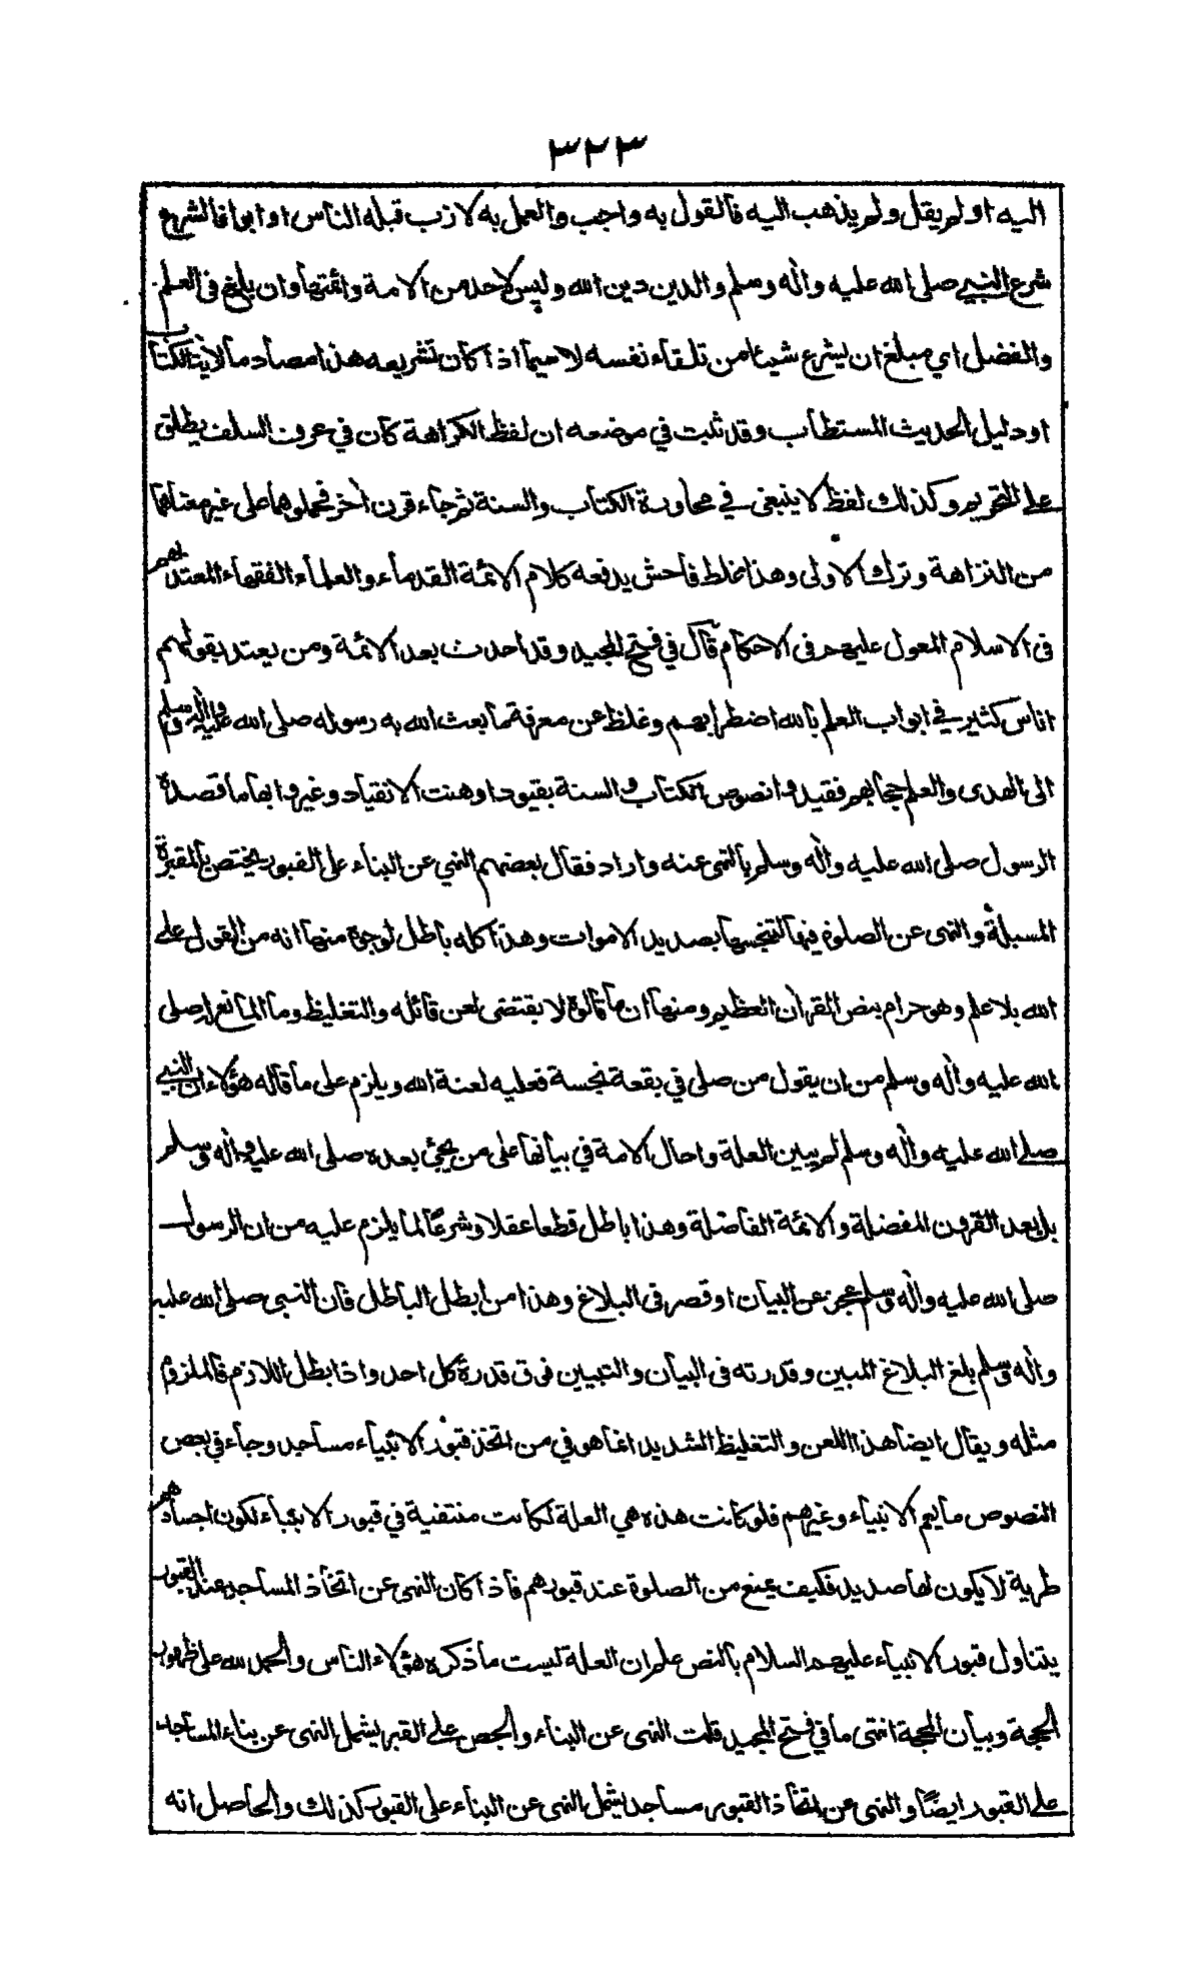 ٣٢٣
اليه او لم يقل ولم يذهب اليه فالقول به واجب والعمل به لازب قبله الناس او ابوا فالشرع
شرع النبي صلى الله عليه واٰله وسلم والدين دين الله وليس لاحد من الامة وائمتها وان بلغ فى العلم
والفضل اي مبلغ ان يشرع شيئا من تلقاء نفسه لا سيما اذا كان تشريعه هذا مصادما لاٰيات الكتاب
او دليل الحديث المستطاب وقد ثبت في موضعه ان لفظ الكراهة كان في عرف السلف يطلق
على التحريم وكذلك لفظ لا ينبغى في محاورة الكتاب والسنة ثم جاء قرن اٰخر فحملوهما على غير معناهما
من النزاهة وترك الاولى وهذا غلط فاحش يدفعه كلام الائمة القدماء والعلماء الفقهاء المعتد بهم
فى الاسلام المعول عليهم فى الاحكام قال في فتح المجيد وقد احدث بعد الائمة ومن يعتد بقولهم
اناس كثير في ابواب العلم بالله اضطرابهم وغلظ عن معرفة ما بعث الله به رسوله صلى الله عليه واٰله وسلم
الى الهدى والعلم حجابهم فقيدوا نصوص الكتاب والسنة بقيود اوهنت الانقياد وغيروا بها ما قصده
الرسول صلى الله عليه واٰله وسلم بالنهى عنه واراد فقال بعضهم النهي عن البناء على القبور يختص بالمقبرة
المسبلة والنهى عن الصلوة فيها لتنجسها بصديد الاموات وهذا كله باطل لوجوه منها انه من القول على
الله بلا علم وهو حرام بنص القراٰن العظيم ومنها ان ما قالوه لا يقتضى لعن قائله والتغليظ وما المانع له صلى
الله عليه واٰله وسلم من ان يقول من صلى في بقعة نجسة فعليه لعنة الله ويلزم على ما قاله هؤلاء ان النبي
صلى الله عليه واٰله وسلم لم يبين العلة واحال الامة في بيانها على من يجئ بعده صلى الله عليه واٰله وسلم
بل بعد القرون المفضلة والائمة الفاضلة وهذا باطل قطعا عقلا وشرعًا لما يلزم عليه من ان الرسول
صلى الله عليه واٰله وسلم عجز عن البيان او قصر فى البلاغ وهذا من ابطل الباطل فان النبى صلى الله عليه
واٰله وسلم بلغ البلاغ المبين وقدرته فى البيان والتبيين فوق قدرة كل احد واذا بطل اللازم فالملزوم
مثله ويقال ايضا هذا اللعن والتغليظ الشديد انما هو في من اتخذ قبور الانبياء مساجد وجاء في بعض
النصوص ما يعم الانبياء وغيرهم فلو كانت هذه هي العلة لكانت منتفية في قبور الانبياء لكون اجسادهم
طرية لا يكون لها صديد فكيف يمنع من الصلوة عند قبورهم فاذا كان النهى عن اتخاذ المساجد عند القبور
يتناول قبور الانبياء عليهم السلام بالنص علم ان العلة ليست ما ذكره هؤلاء الناس والحمد لله على ظهور
الحجة وبيان المحجة انتهى ما في فتح المجيد قلت النهى عن البناء والجص على القبر يشمل النهى عن بناء المساجد
على القبور ايضًا والنهى عن اتخاذ القبور مساجد يشمل النهى عن البناء على القبور كذلك والحاصل انه